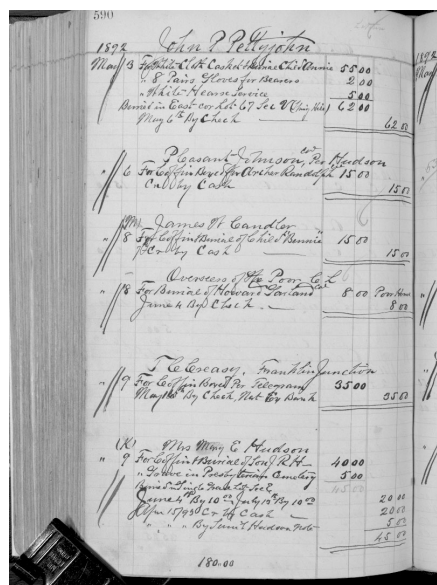 590
1892 John P Pettyjohn
May 3 For White Cloth Casket + Burial Child Annie 55 00
" 8 Pairs Gloves for Bearers 2 00
" White Hearse Service 5 00
Buried in East cor Lot 67 Sec V 62 00
May 6th By Check 62 00
Pleasant Johnson, Per Hudson
" 6 For Coffin Boxed for Archer Randolph 15 00
Cr by Cash 15 00
James W Candler
" 8 For Coffin + Burial of Child "Bennie" 15 00
Cr by Cash 15 00
Overseers of the Poor C L
" 8 For Burial of Howard Garland 8 00 Poor House
June 4 By Check 8 00
T C Creasy, Franklin Junction
" 9 For Coffin Boxed Per Telegram 35 00
May 15th By Check, Net by Bank 35 00
Mrs Mary E Hudson
" 9 For Coffin + Burial of Son J R H 40 00
" Grave in Presbyterian Cemetery 5 00
45 00
June 4th By 10 00 July 15th By 10 00 20 00
Apr 15/93 Cr by Cash 20 00
" " " By Hudson Note 5 00
45 00
180.00